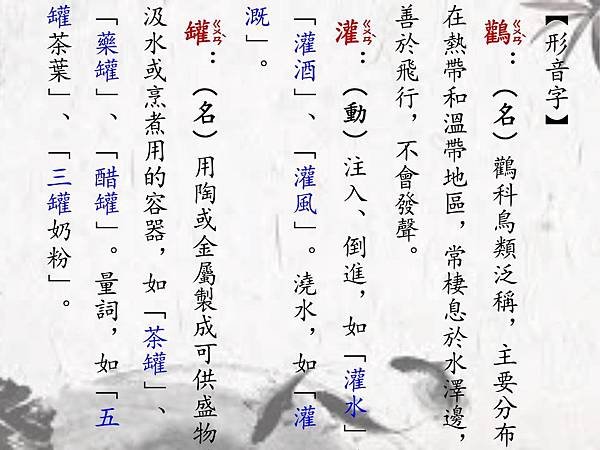 【形音字】
鸛ㄍㄨㄢˋ：（名）鸛科鳥類泛稱，主要分布
在熱帶和溫帶地區，常棲息於水澤邊，
善於飛行，不會發聲。
灌ㄍㄨㄢˋ：（動）注入、倒進，如「灌水」
、「灌酒」、「灌風」。澆水，如「灌
溉」。
罐ㄍㄨㄢˋ：（名）用陶或金屬製成可供盛物
汲水或烹煮用的容器，如「茶罐」、
「藥罐」、「醋罐」。量詞，如「五
罐茶葉」、「三罐奶粉」。